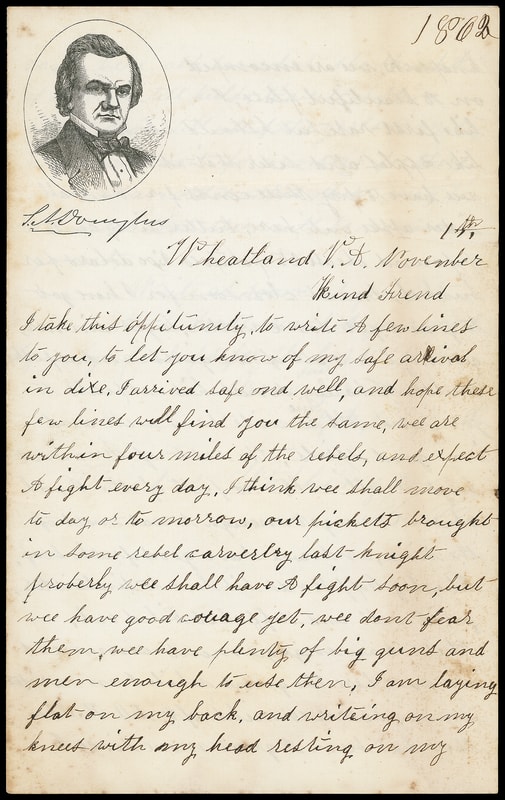 1862
S. A. Douglas
15th,
Wheatland V.A. November
Kind Frend
I take this oppitunity, to write A few lines
to you, to let you know of my safe arival
in dixe, I arrived safe and well, and hope these
few lines will find you the same, wee are
within four miles of the rebels, and expect
A fight every day, I think wee shall move
to day or to morrow, our pickets brought
in some rebel carverlry last knight
proberly wee shall have A fight soon, but
wee have good courage yet, wee dont fear
them, wee have plenty of big guns and
men enough to use then, I am laying
flat on my back, and writeing on my
knees with my head resting on my